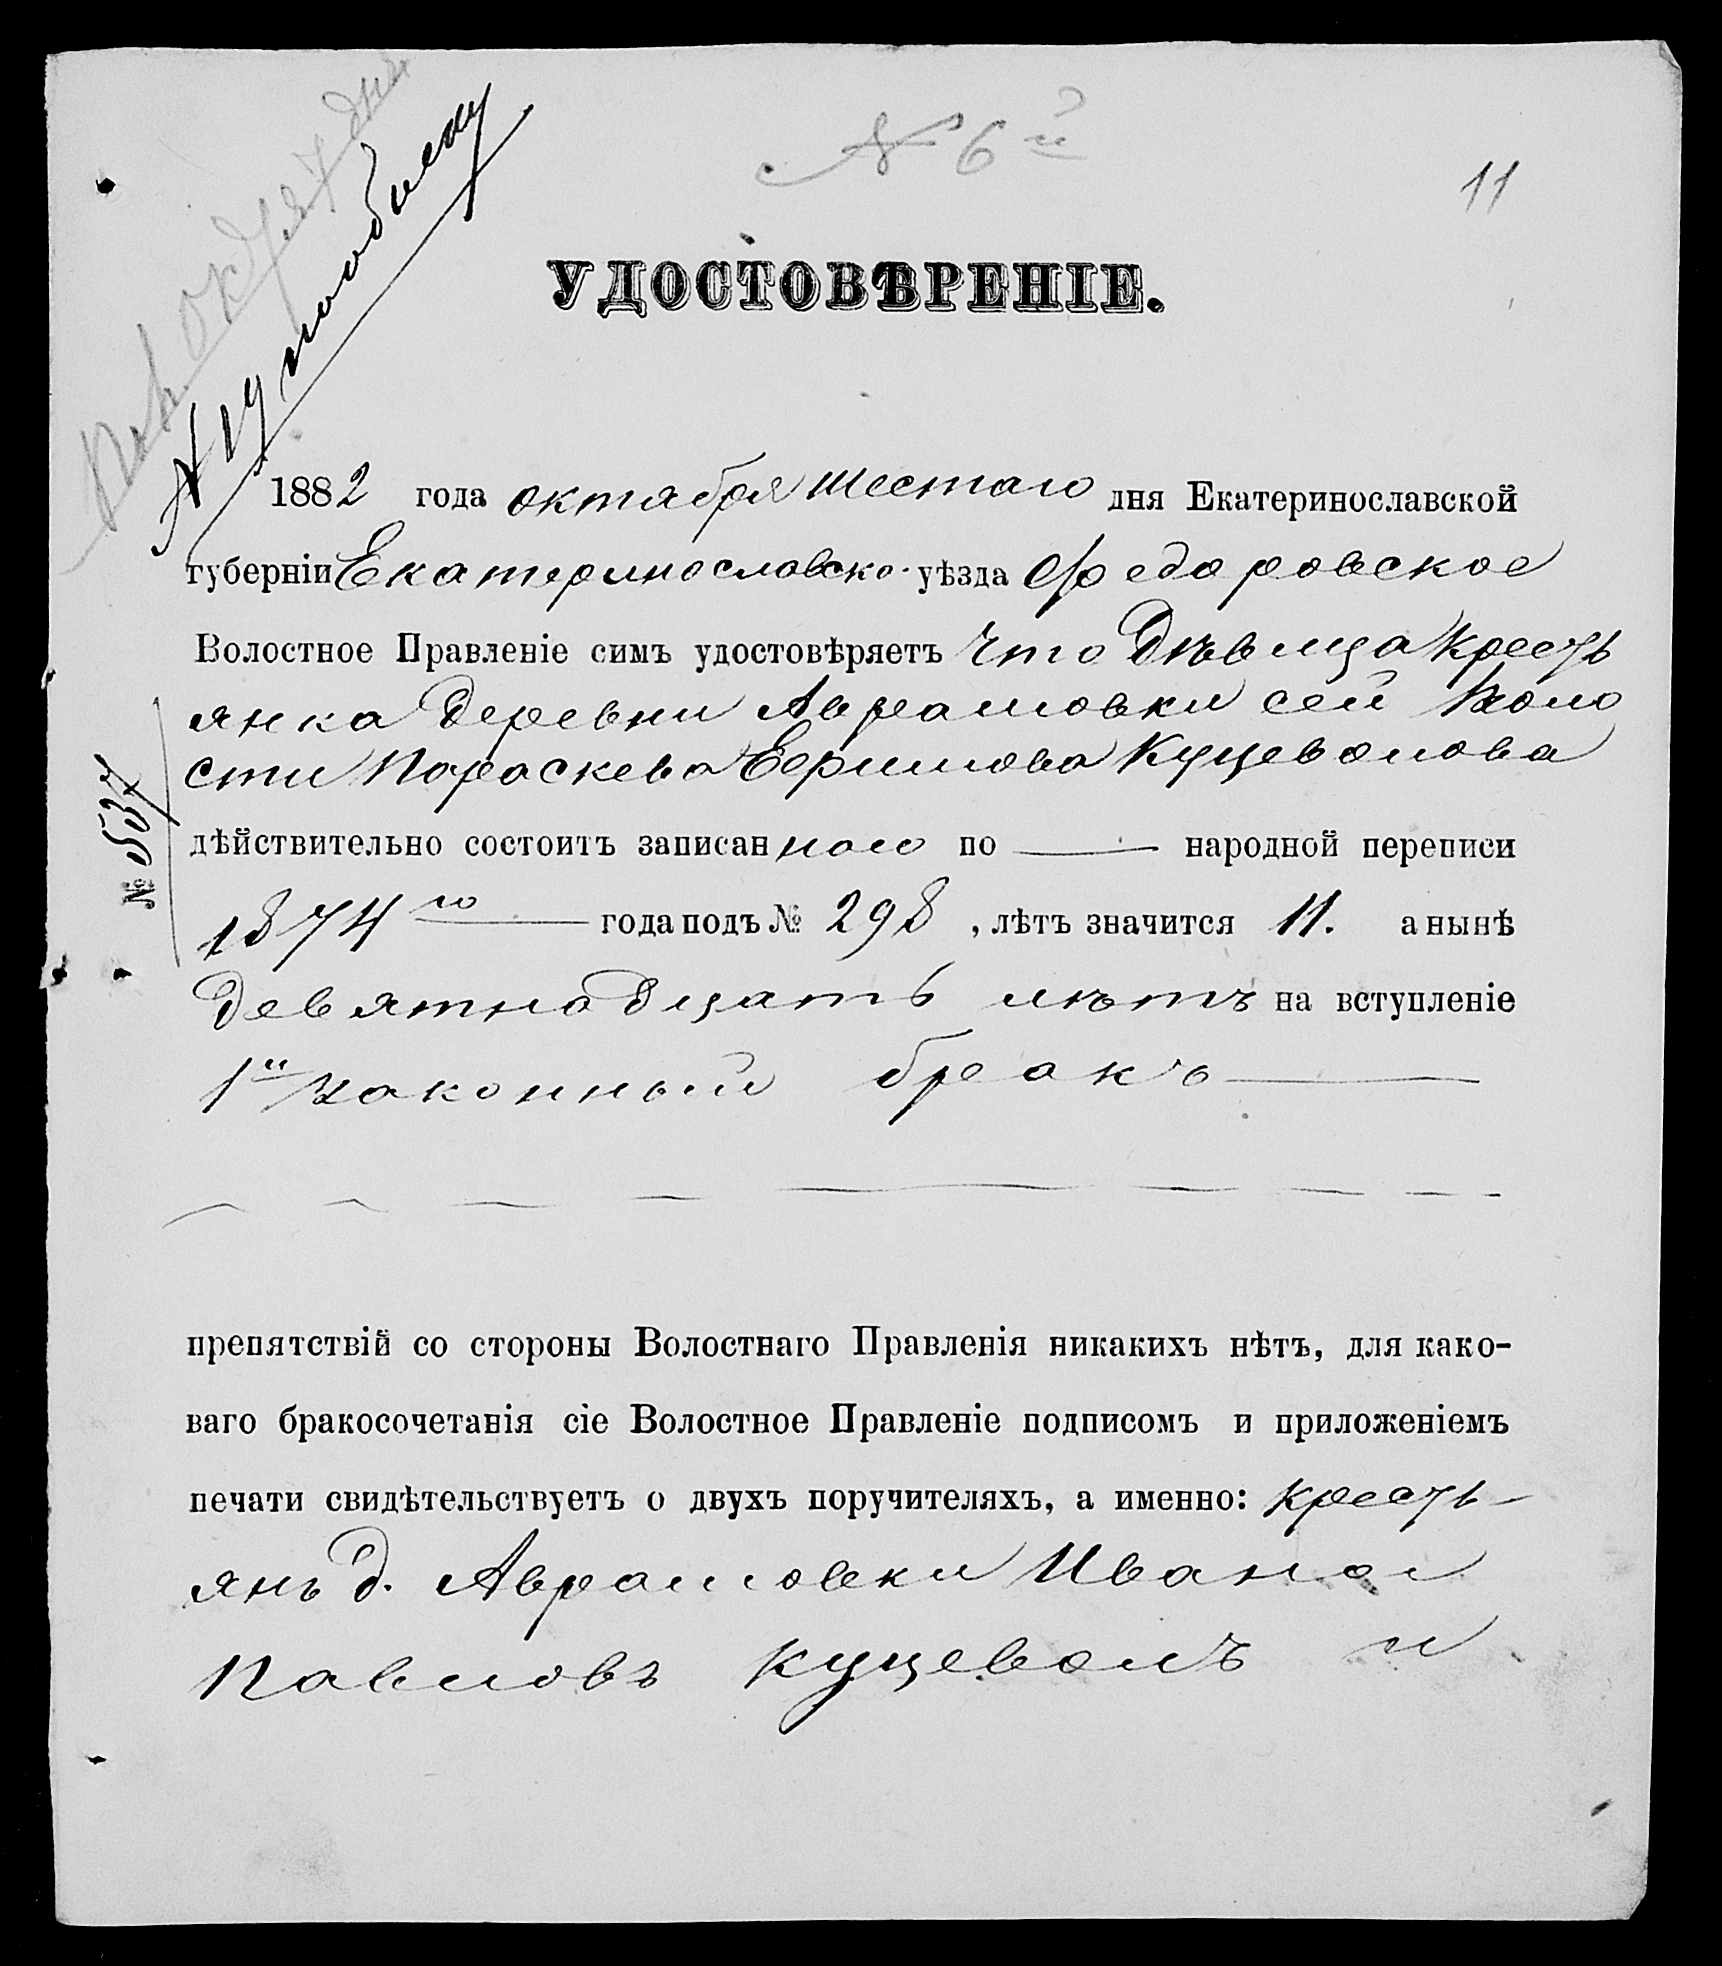 № 6й
11
УДОСТОВѢРЕНІЕ.
1882 года октября шестаго дня Екатеринославской
губерніи Екатеринославско. уѣзда Федоровское
Волостное Правленіе симъ удостовѣряетъ что Дѣвица кресть
янка Деревни Аврамовки сей Воло
сти Параскева Куцеволова
№ 537
дѣйствительно состоитъ записанною по народной переписи
1874го года подъ № 298, лѣтъ значится 11. а нынѣ
Девятнадцать лѣтъ на вступленіе
1й законный бракъ
препятствій со стороны Волостнаго Правленія никакихъ нѣтъ, для како-
ваго бракосочетанія сіе Волостное Правленіе подписомъ и приложеніемъ
печати свидѣтельствуетъ о двухъ поручителяхъ, а именно: кресть-
янъ д. Аврамовки Иванъ
Павловъ Куцеволъ и